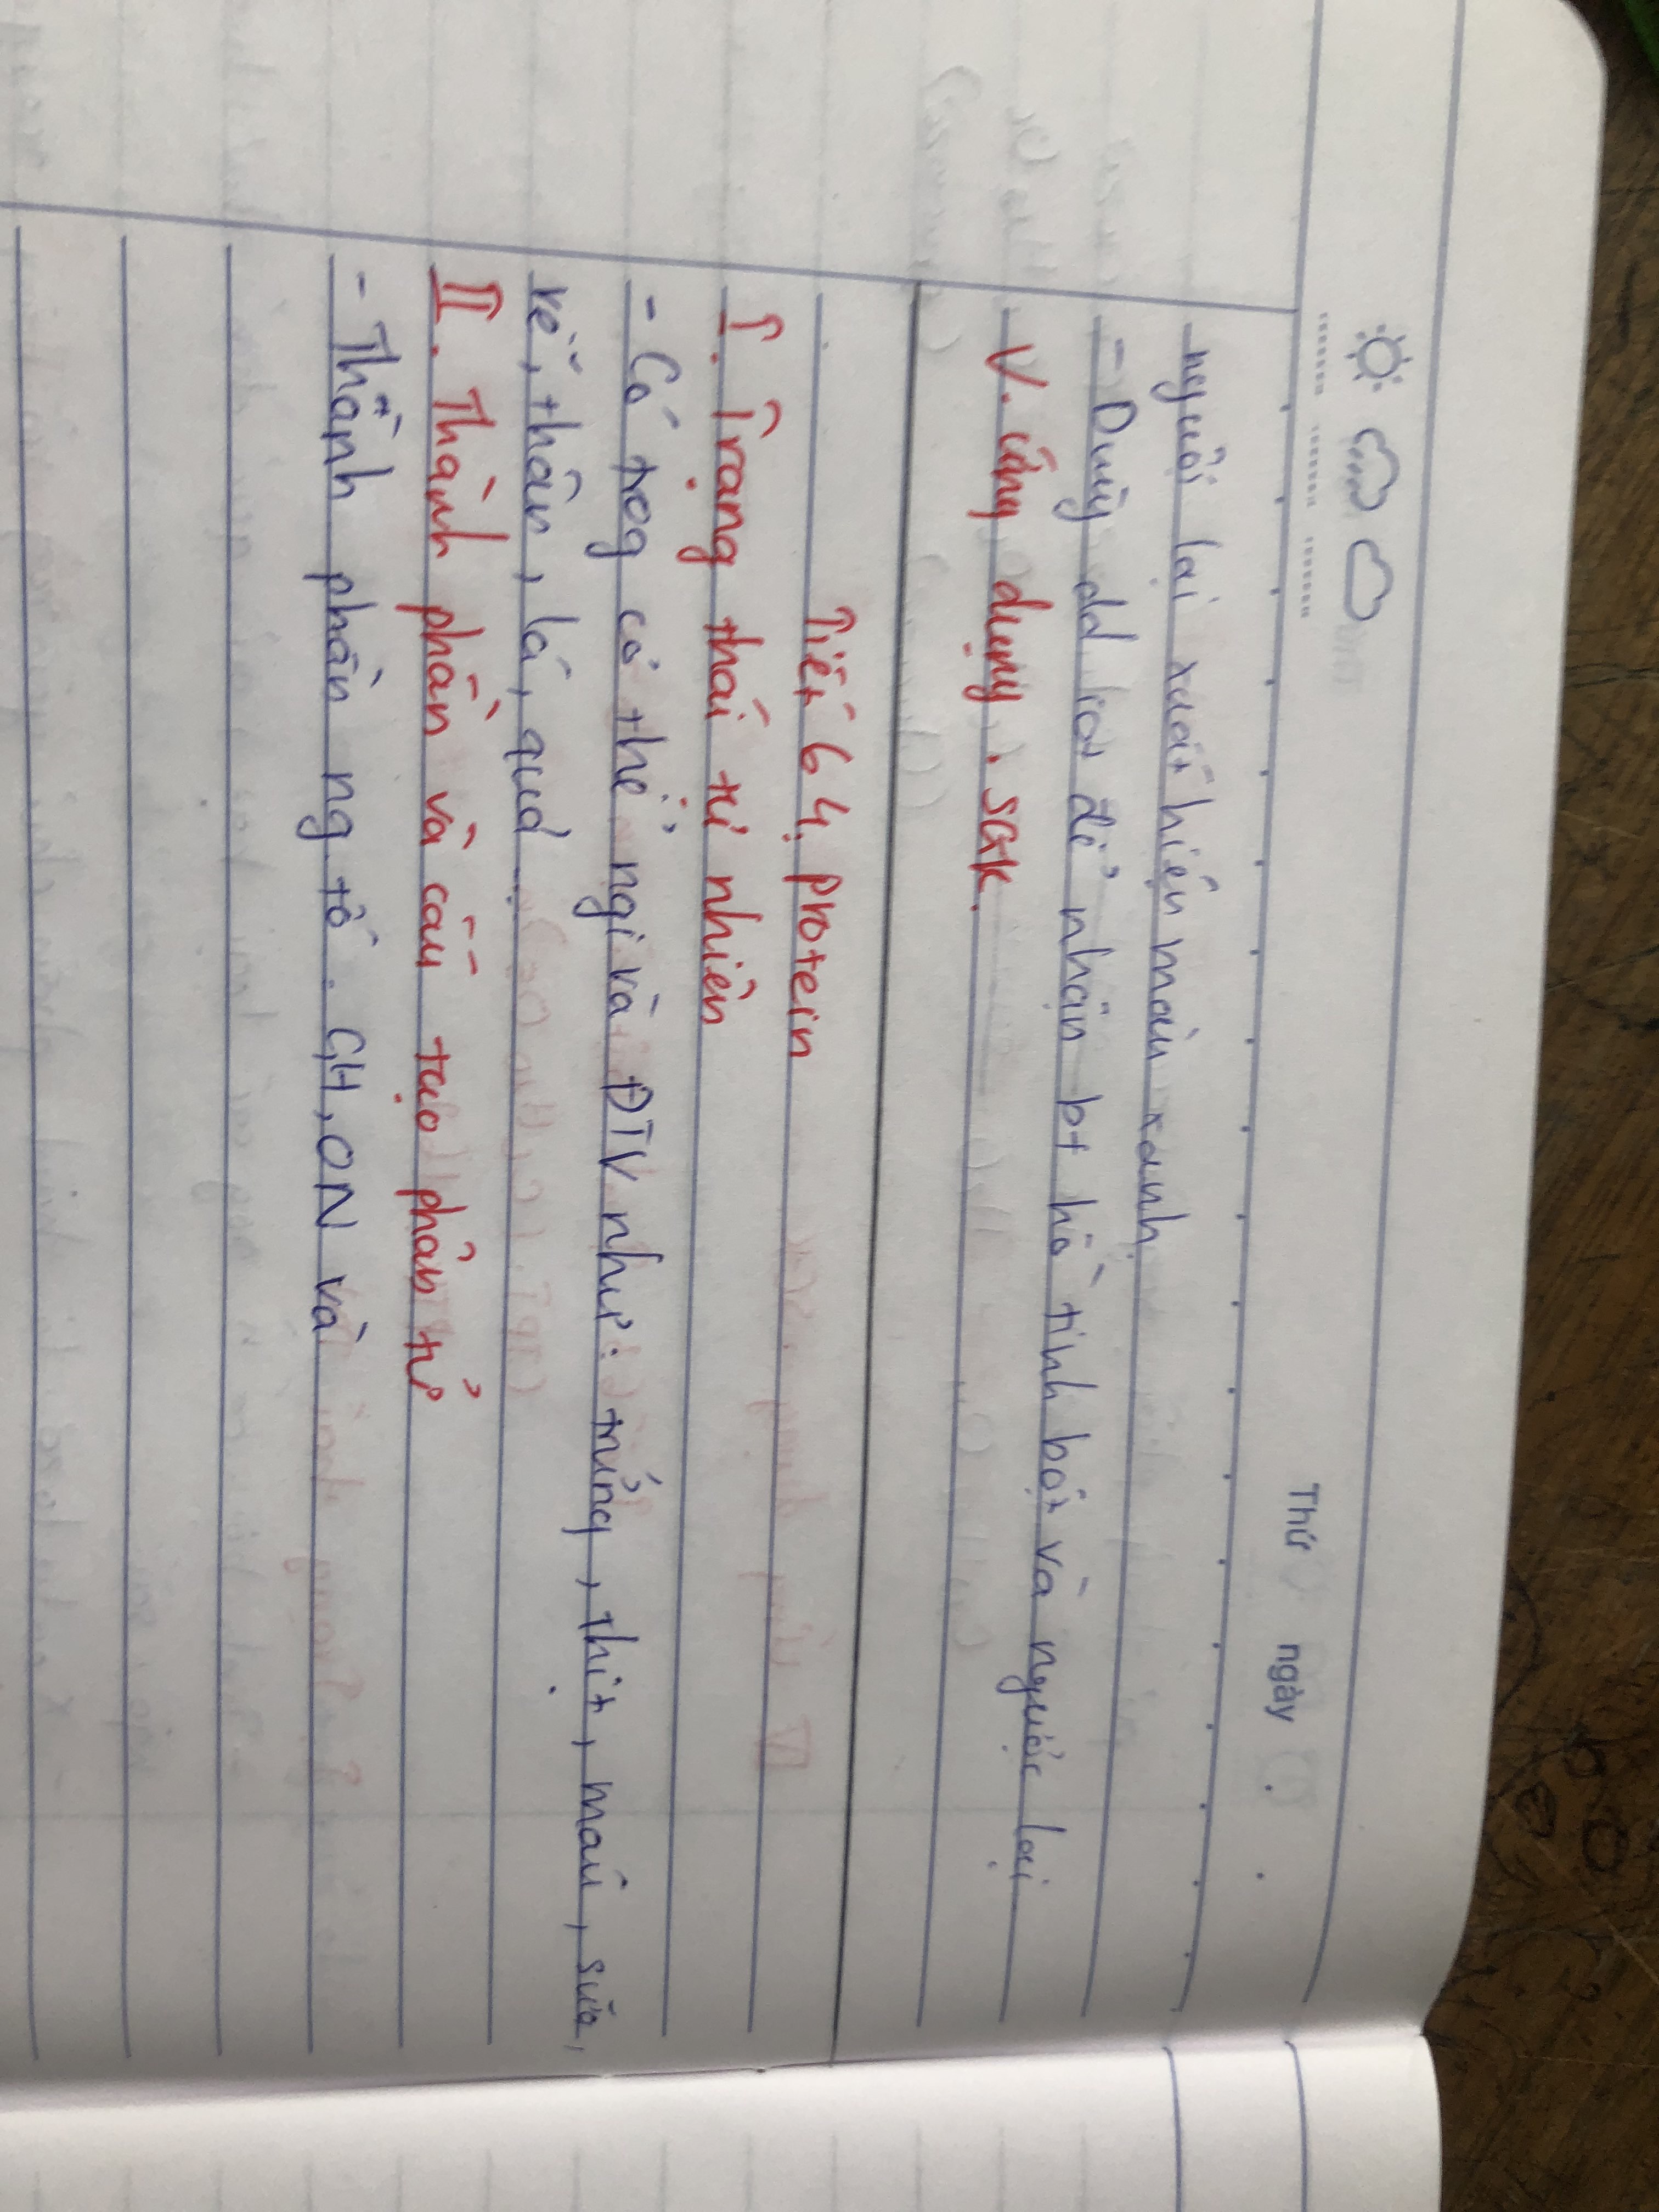 Thứ ngày . .
người lại xuất hiện màu xanh.
- Dùng dd Iot để nhận bt hồ tinh bột và ngược lại
V. ứng dụng: SGK.
Tiết 64. protein
I. Trạng thái tự nhiên
- Có trog cơ thể ngi và ĐTV như: trứng, thịt, máu, sữa,
rễ, thân, lá, quả...
II. Thành phần và cấu tạo phân tử
- Thành phần ng tố. C,H,O,N và